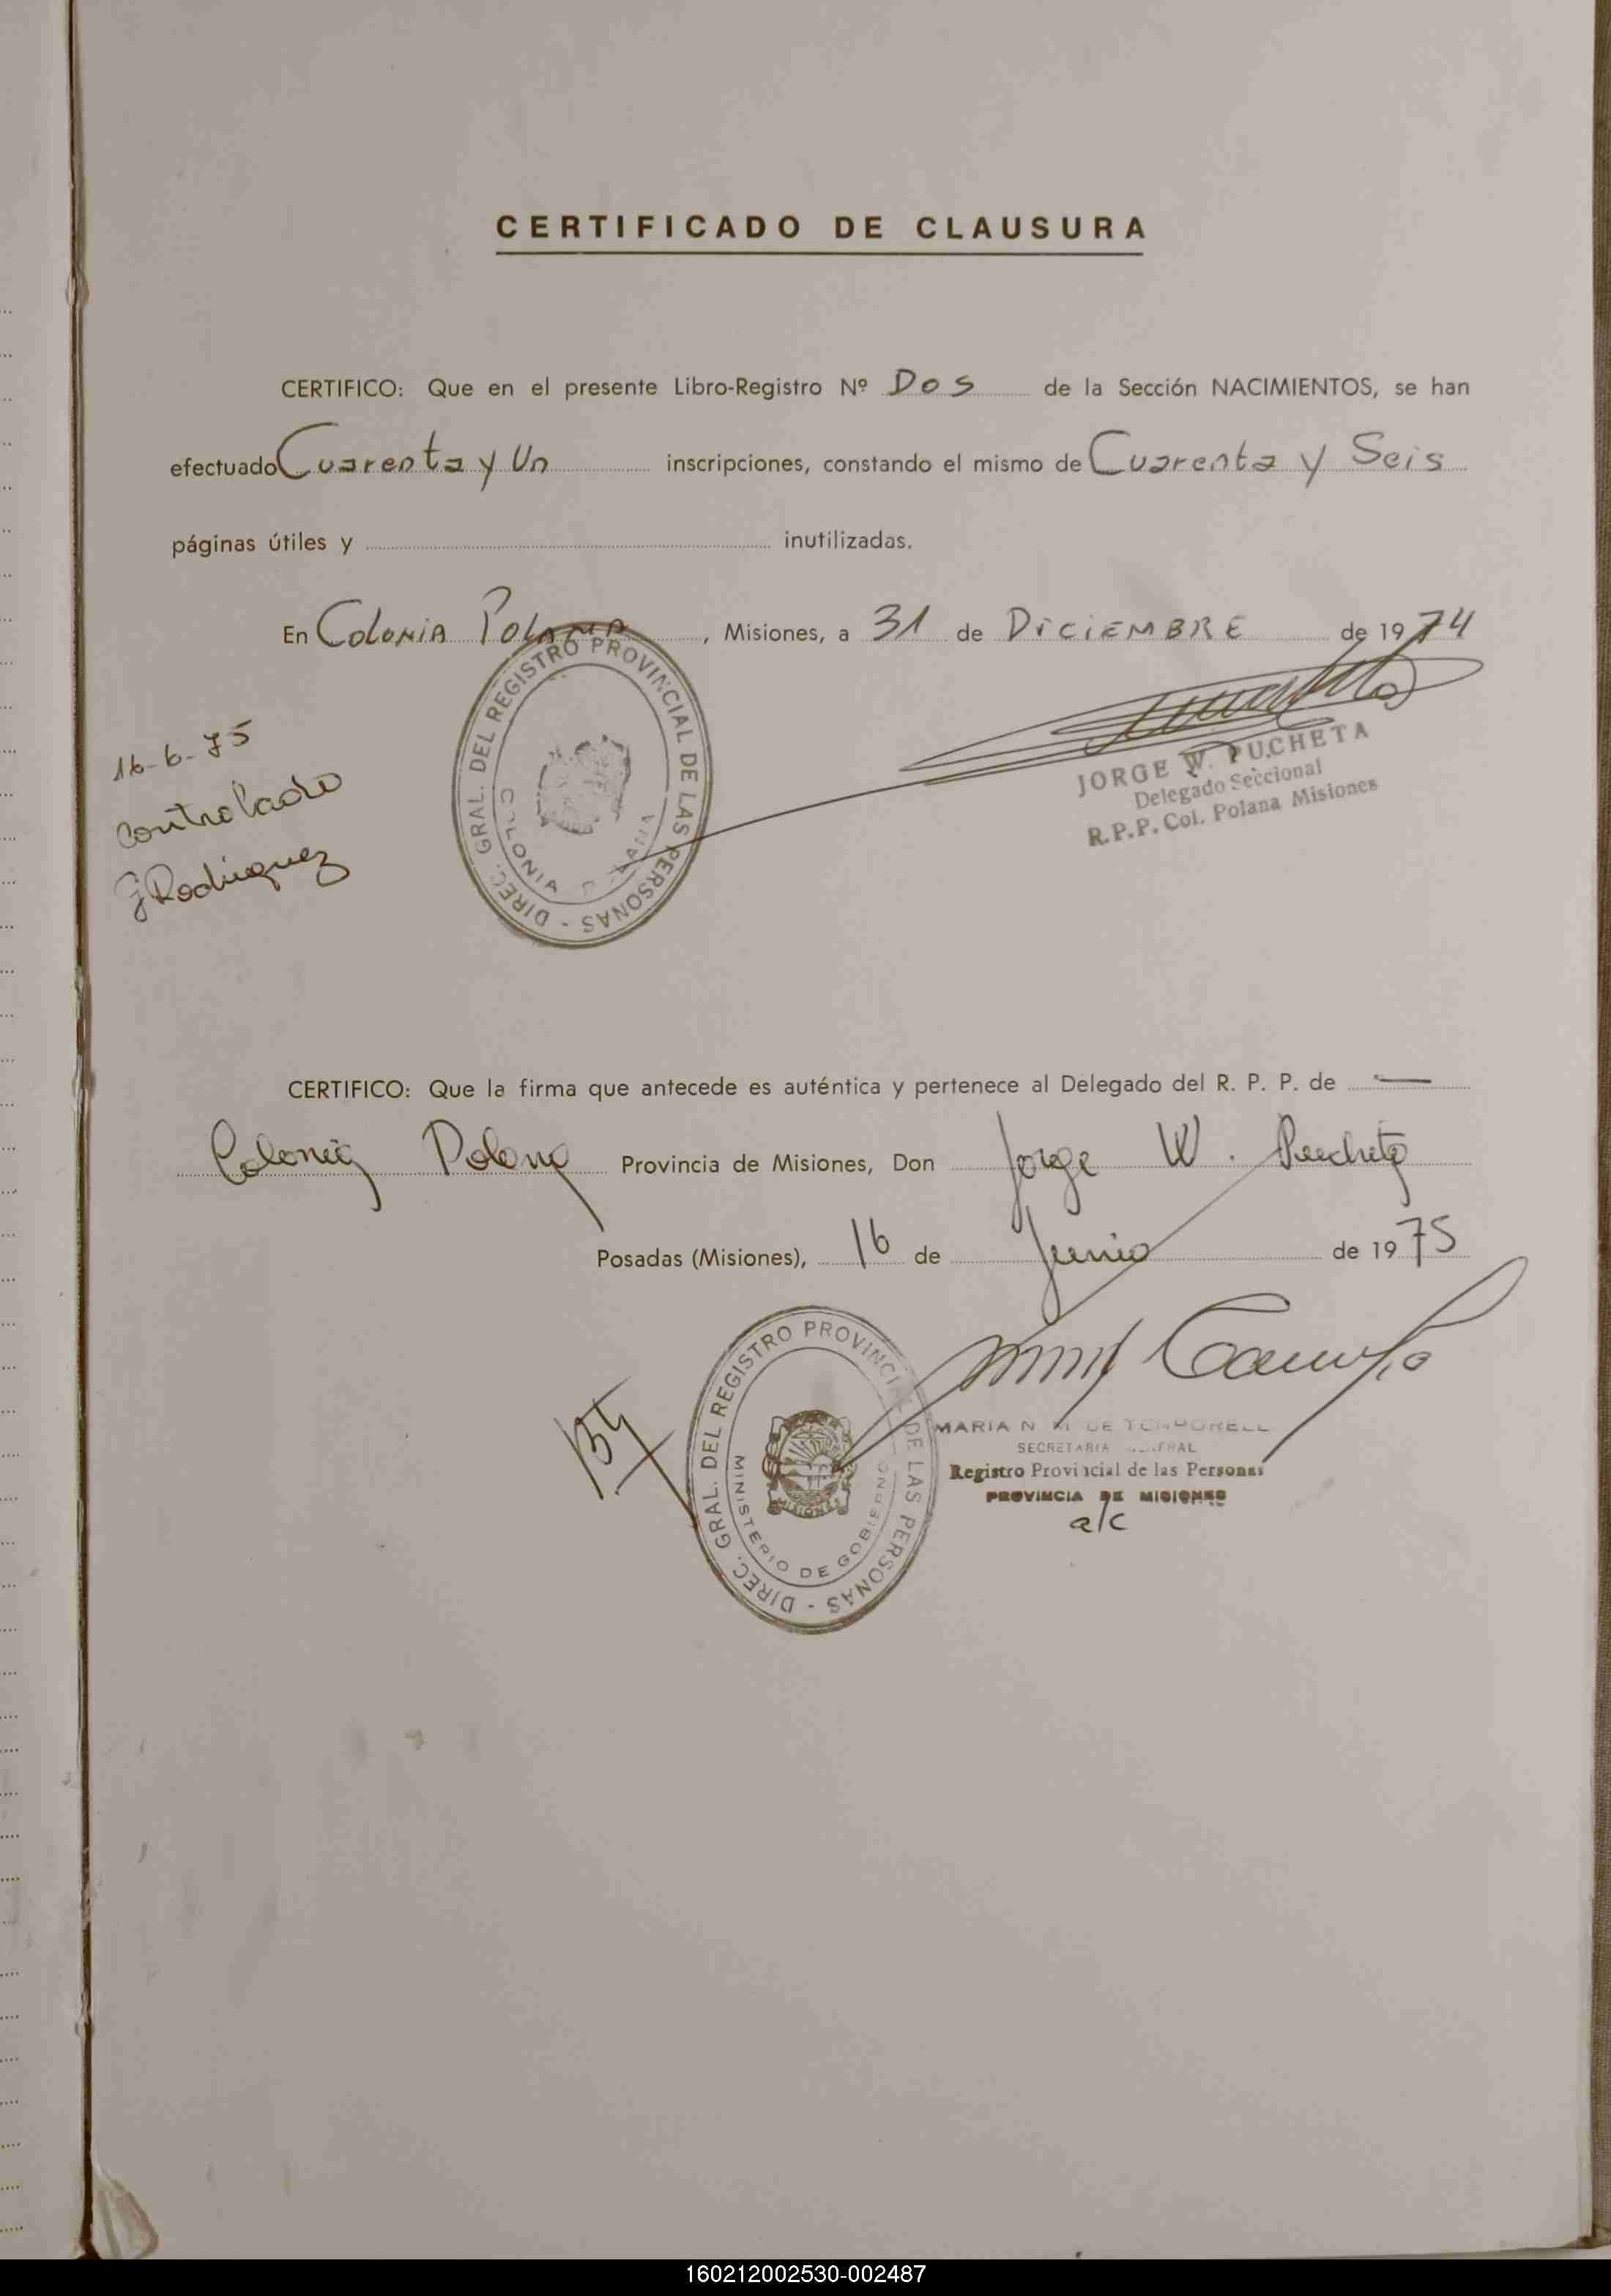 CERTIFICADO DE CLAUSURA
CERTIFICO: Que en el presente Libro-Registro Nº Dos de la Sección NACIMIENTOS, se han
efectuado Cuarenta y Un inscripciones, constando el mismo de Cuarenta y Seis
páginas útiles y inutilizadas.
En Colonia Polana, Misiones, a 31 de Diciembre de 1974
DIREC. GRAL. DEL REGISTRO PROVINCIAL DE LAS PERSONAS -
COLONIA POLANA
JORGE W. PUCHETA
Delegado Seccional
R.P.P. Col. Polana Misiones
16-6-75
Controlado
J Rodriguez
CERTIFICO: Que la firma que antecede es auténtica y pertenece al Delegado del R. P. P. de —
Colonia Polana Provincia de Misiones, Don Jorge W. Puccheta
Posadas (Misiones), 16 de Junio de 1975
DIREC. GRAL. DEL REGISTRO PROVINCIAL DE LAS PERSONAS -
MINISTERIO DE GOBIERNO
MISIONES
MARIA N M DE
SECRETARIA GENERAL
Registro Provincial de las Personas
PROVINCIA DE MISIONES
a/c
160212002530-002487